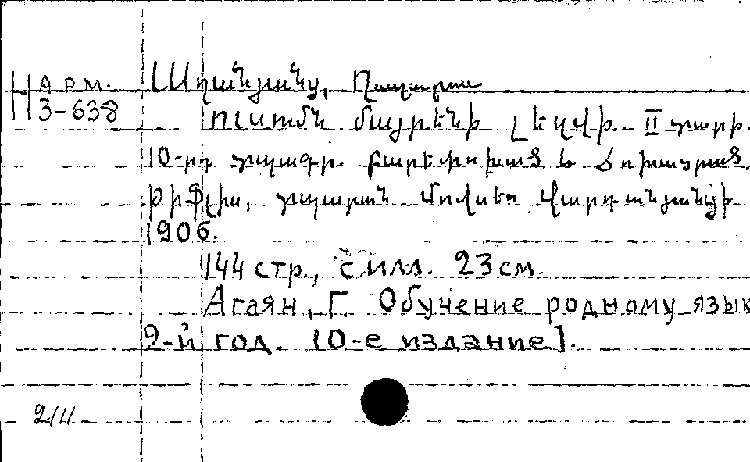 Н арм.
3-638
Աղանյանց, Ղազարոս
Ուսումն մայրենի լեզվի. II տարի.
10-րդ տպագր. բարեփոխած և ճոխացրած
Թիֆլիս, տպարան Մովսես Վարդանյանցի
1906.
144 стр., с илл. 23 см
Агаян, Г. Обучение родному язык
2-й год. (0-е издание].
2/11